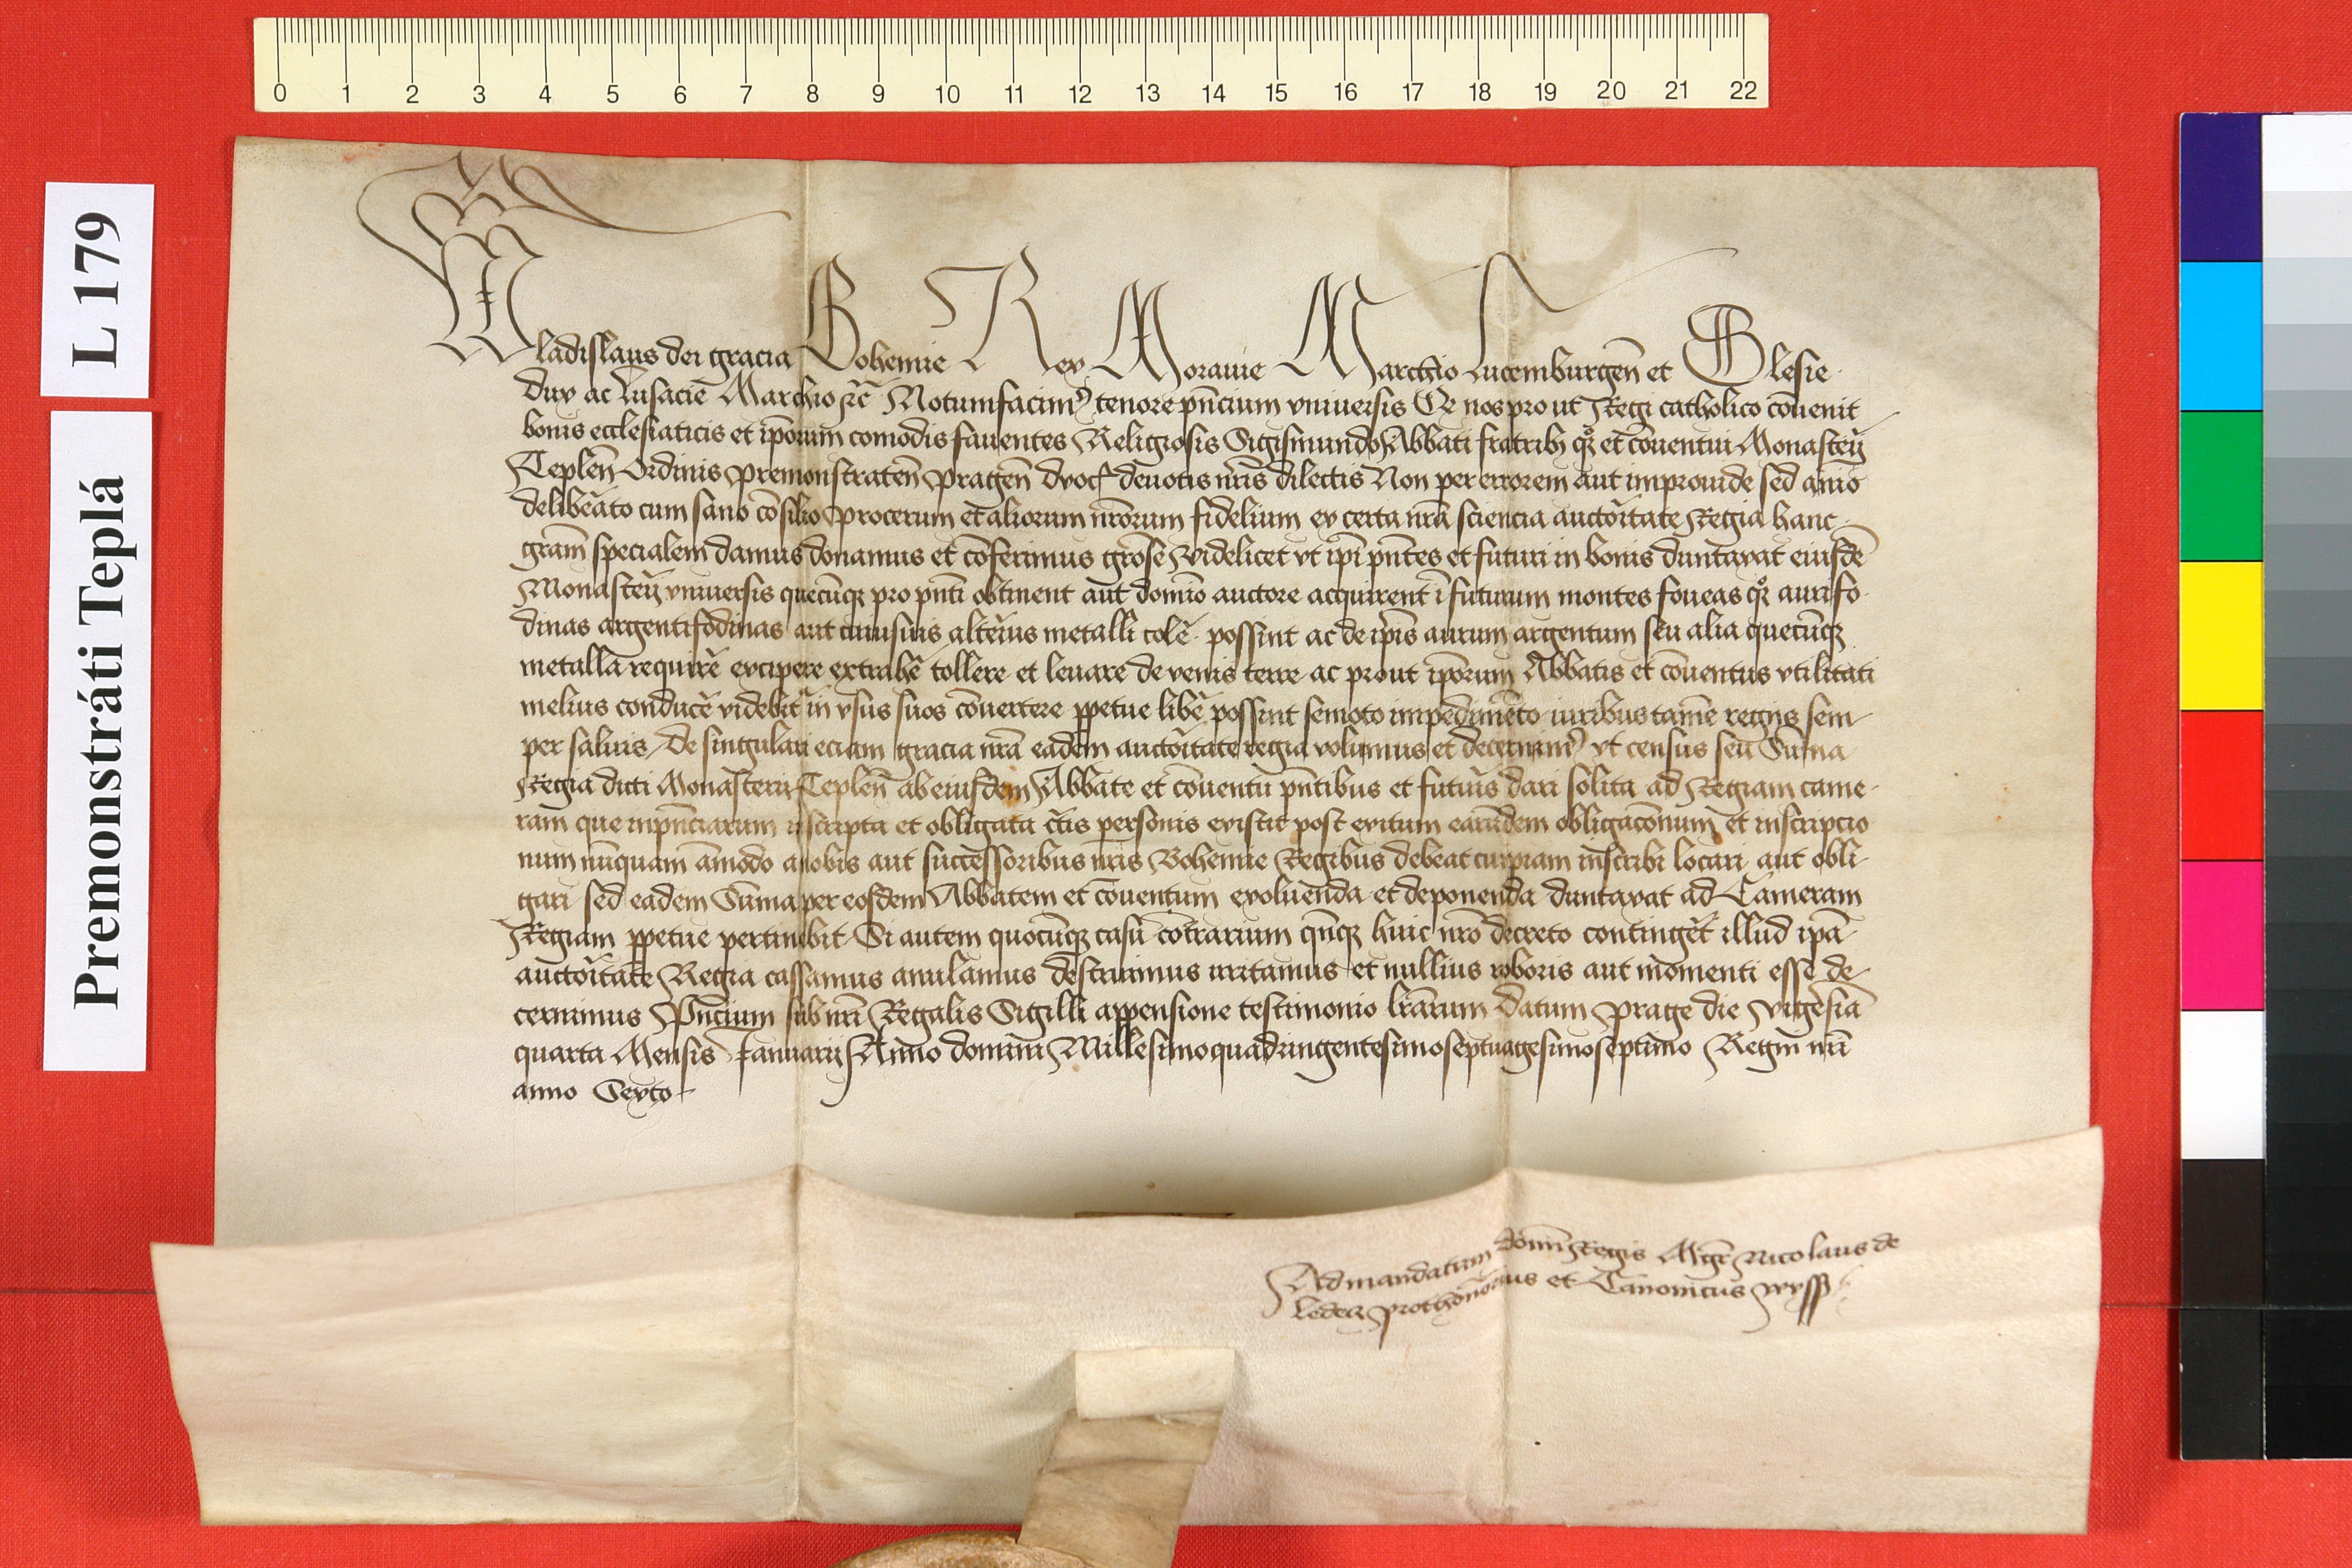 0 1 2 3 4 5 6 7 8 9 10 11 12 13 14 15 16 17 18 19 20 21 22
L 179
Premonstráti Teplá
Wladislaus dei gracia Bohemie Rex Morauie Marchio Lucemburgen̄ et Slesie
dux ac Lusacie Marchio ꝛc̄ Notumfacimꝰ tenore pn̄cium vniuersis Qꝫ nos pro ut Regi catholico cōuenit
bonis ecclesiaticis et ip̄orum comodis fauentes Religiosis Sigismundo Abbati fratribꝫ qꝫ et cōuentui Monasterij
Teplen̄ Ordinis premonstraten̄ pragen̄ dyoc̄ deuotis nr̄is dilectis Non per errorem aut improuide sed aīo
delibe͛ato cum sano cōsilio procerum et aliorum nr̄orum fidelium ex certa nr̄a sciencia aucto͛itate Regia hanc
gr̄am specialem damus donamus et cōferimus gr̄ose videlicet vt ip̄i pn̄tes et futuri in bonis duntaxat eiusdē
Monasterij vniuersis quecūqꝫ pro pn̄ti obtinent aut domīo auctore acquirent ī futurum montes foueas qꝫ aurifo
dinas argentifodinas aut cuiusuis alterius metalli cole͛ possint ac de ip̄is aurum argentum seu alia quecūqꝫ
metalla require͛ excipere extrahe͛ tollere et leuare de venis terre ac prout ip̄orum Abbatis et cōuentus vtilitati
melius conduce͛ videbit͛ in vsus suos cōuertere ꝑpetue libe͛ possint semoto impedimēto iuribus tamē regijs sem
per saluis De singulari eciam gracia nr̄a eadem aucto͛itate regia volumus et decernimꝰ vt census seu Sum̄a
Regia dicti Monasterij Teplen̄ ab eiusdem Abbate et cōuentu pn̄tibus et futuris dari solita ad Regiam came
ram que inpn̄ciarum īscripta et obligata c͛tis personis existit post exitum earundem obligacōnum et inscripcio
num nūquam āmodo a nobis aut successoribus nr̄is Bohemie Regibus debeat cuipiam inscribi locari aut obli
gari sed eadem Sum̄a per eosdem Abbatem et cōuentum exoluenda et deponenda duntaxat ad Cameram
Regiam ꝑpetue pertinebit Si autem quocūqꝫ casu cōtrarium qn̄qꝫ huic nr̄o decreto continge͛t illud ip̄a
aucto͛itate Regia cassamus anulamus destruimus irritamus et nullius roboris aut momenti esse de
cernimus Pn̄cium sub nr̄i Regalis Sigilli appensione testimonio lr̄arum Datum Prage die vigesīa
quarta Mensis Januarij Anno domini Millesimoquadringentesimoseptuagesimoseptimo Regni nr̄i
anno Sexto
Ad mandatum domī Regis Mgr̄ Nicolaus de
prothōnotarius et Canonicus wyss